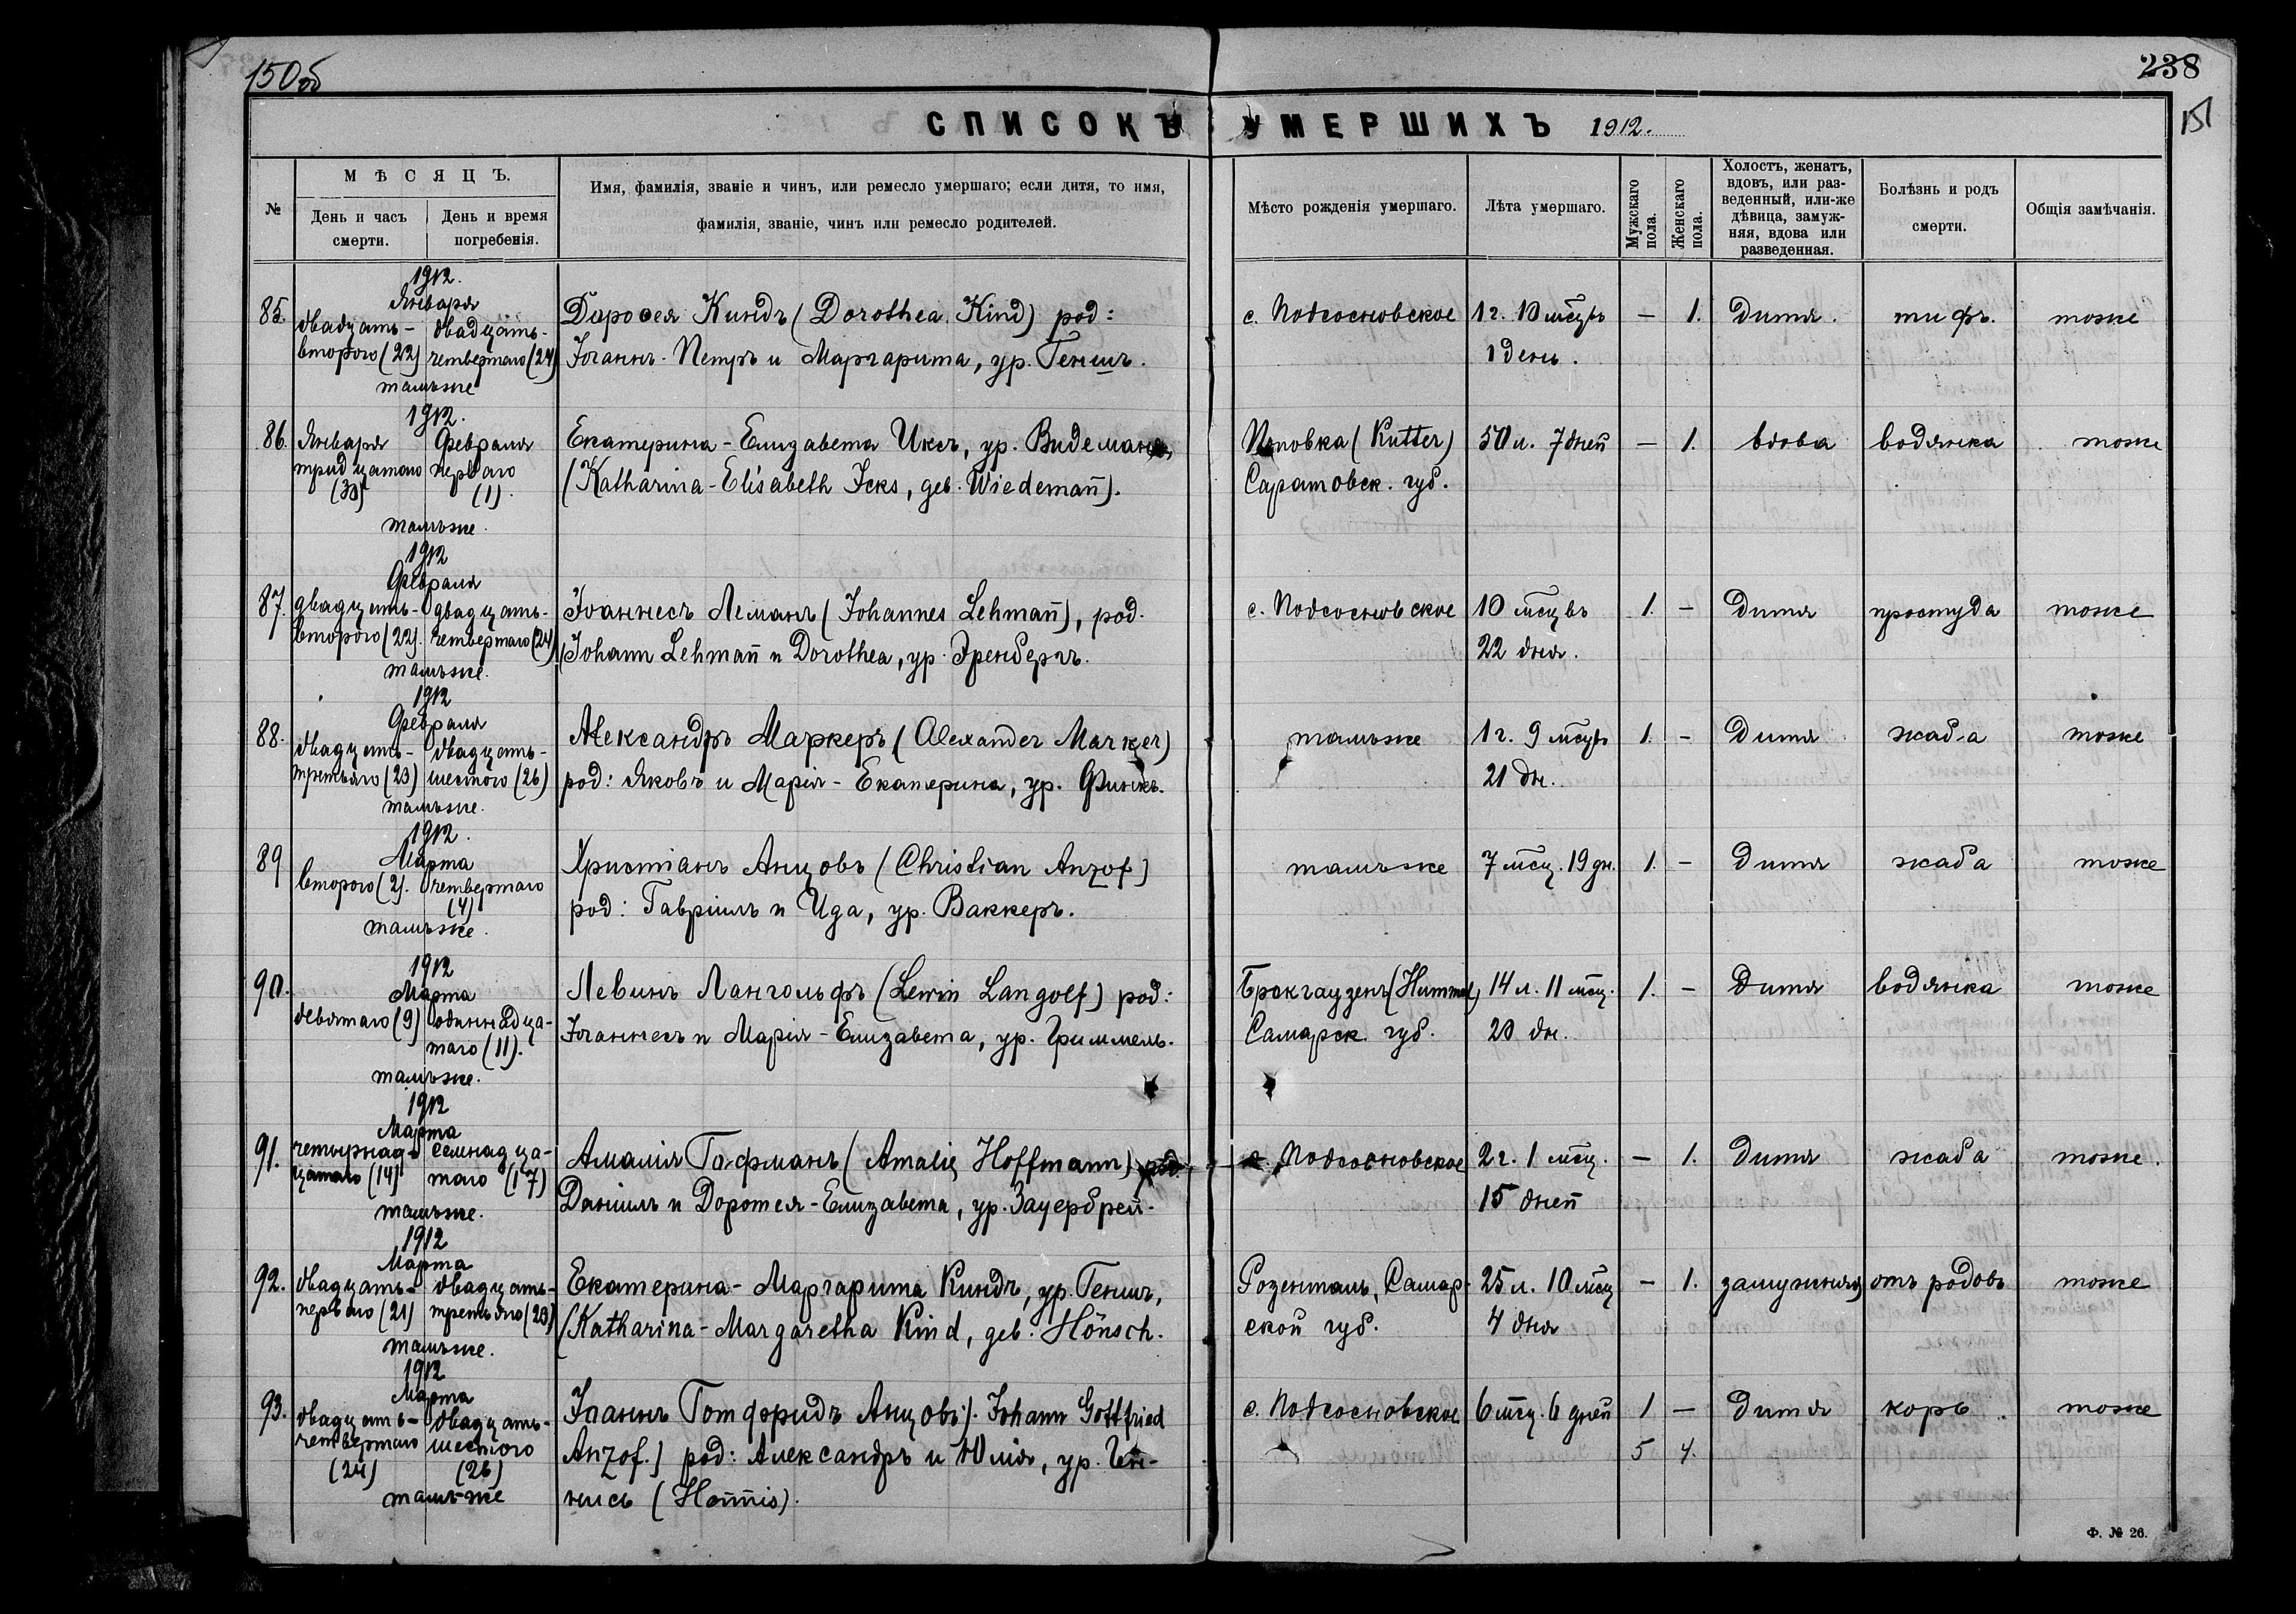 150 об
238
151
СПИСОКЪ УМЕРШИХЪ 1912.
№
МѢСЯЦЪ.
День и часъ смерти.
День и время погребенія.
Имя, фамилія, званіе и чинъ, или ремесло умершаго; если дитя, то имя,
фамилія, званіе, чинъ или ремесло родителей.
Мѣсто рожденія умершаго.
Лѣта умершаго.
Мужскаго пола.
Женскаго пола.
Холостъ, женатъ,
вдовъ, или раз-
веденный, или-же
дѣвица, замуж-
няя, вдова или
разведенная.
Болѣзнь и родъ
смерти.
Общія замѣчанія.
1912.
Января
85. двадцать- двадцать- Доровея Киндъ (Dorothea Kind) род: с. Подсосновское 1 г. 10 мсцвъ — 1. Дитя. тифъ. тоже
второго (22) четвертаго (24) Іоаннъ-Петръ и Маргарита, ур. Геншъ. 1 день.
тамъже
1912.
86. Января Февраля Екатерина-Елизавета Иксъ, ур. Видеманъ, Поповка (Kutter) 50 л. 7 дней — 1. вдова водянка тоже
тридцатаго перваго (Katharina-Elisabeth Icks, geb. Wiedemañ). Саратовск. губ.
(30) (1).
тамъже.
1912
Февраля
87. двадцать- двадцать- Іоаннесъ Леманъ (Johannes Lehmañ), род. с. Подсосновское 10 мсцвъ 1. — Дитя простуда тоже
второго (22). четвертаго (24) Johann Lehmañ и Dorothea, ур. Эренбергъ. 22 дня.
тамъже.
1912
Февраля
88. двадцать- двадцать- Александръ Маркеръ (Alexander Marker) тамъже 1 г. 9 мсцвъ 1. — Дитя жаба тоже
третьяго (23) шестого (26) род: Яковъ и Марія-Екатерина, ур. Финкъ. 21 дн.
тамъже.
1912.
Марта
89 второго (2). четвертаго Христіанъ Анцовъ (Christian Anzof) тамъже 7 мсц. 19 дн. 1. — Дитя жаба тоже
(4) род: Гавріилъ и Ида, ур. Ваккеръ.
тамъже.
1912
Марта
90. девятаго (9) одиннадца- Левинъ Лангольфъ (Lewin Langolf) род: Брокгаузенъ (Hummel) 14 л. 11 мсц. 1. — Дитя водянка тоже
таго (11). Іоаннесъ и Марія-Елизавета, ур. Гриммель. Самарск. губ. 20 дн.
тамъже.
1912
Марта
91. четырнад- семнадца- Амалія Гофманъ (Amalie Hoffmann) род. с. Подсосновское 2 г. 1 мсц. — 1. Дитя жаба тоже.
цатаго (14) таго (17) Даніилъ и Доротея-Елизавета, ур. Зауербрей. 15 дней
тамъже.
1912
Марта
92. двадцать- двадцать- Екатерина-Маргарита Киндъ, ур. Геншъ, Розенталь, Самар- 25 л. 10 мсц — 1. замужняя отъ родовъ тоже
перваго (21) третьяго (23) (Katharina-Margaretha Kind, geb. Hönsch. ской губ. 4 дня
тамъже.
1912
Марта
93. двадцать- двадцать- Іоаннъ Готфридъ Анцовъ). Johann Gottfried с. Подсосновское 6 мсц. 6 дней 1 — Дитя корь. тоже
четвертаго шестого Anzof.) род: Александръ и Юлія, ур. Ген- 5 4.
(24) (26) нисъ (Hoñnis).
тамъ-же
Ф. № 26.